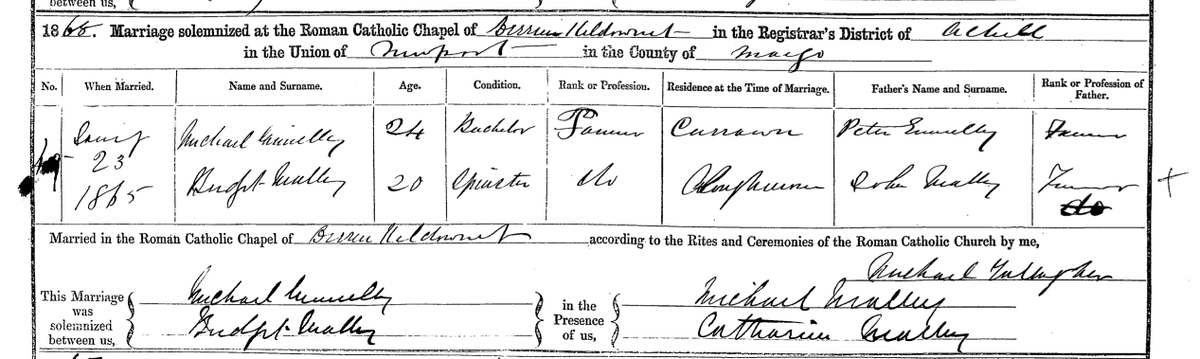 between us,
1865. Marriage solemnized at the Roman Catholic Chapel of Kildownet in the Registrar's District of Achill
in the Union of Newport in the County of Mayo
No. When Married. Name and Surname. Age. Condition. Rank or Profession. Residence at the Time of Marriage. Father's Name and Surname. Rank or Profession of Father.
Michael 24 Bachelor Farmer Currawn Peter Farmer
23
1865 Bridget Malley 20 Spinster do John Malley Farmer
do
Married in the Roman Catholic Chapel of Kildownet according to the Rites and Ceremonies of the Roman Catholic Church by me,
Michael Gallagher
This Marriage was solemnized between us, Michael in the Presence of us, Michael Malley
Bridget Malley Catharine Malley